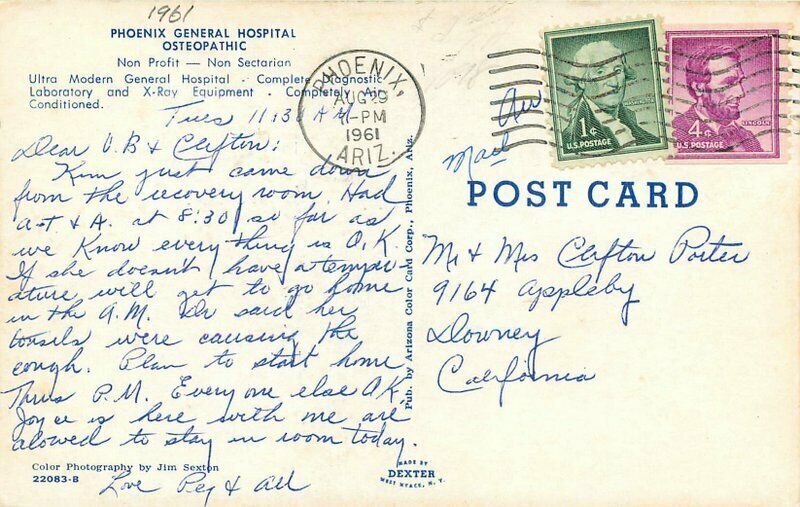 1961
PHOENIX GENERAL HOSPITAL
OSTEOPATHIC
Non Profit — Non Sectarian
Ultra Modern General Hospital - Complete Diagnostic
Laboratory and X-Ray Equipment - Completely Air
Conditioned.
Tues 11:30 AM
Dear V.B & Clifton:
Kim just came down
from the recovery room. Had
a T & A. at 8:30 so far as
we know everything is O.K.
If she doesn't have a temper-
ature will get to go home
in the A.M. Dr said her
tonsils were causing the
cough. Plan to start home
Thurs P.M. Everyone else O.K.
Joyce is here with me are
alowed to stay in room today.
Love Peg & all
Color Photography by Jim Sexton
22083-B
Pub. by Arizona Color Card Corp., Phoenix, Ariz.
MADE BY
DEXTER
WEST NYACK, N. Y.
PHOENIX,
AUG 29
11-PM
1961
ARIZ.
WASHINGTON
1¢
U.S. POSTAGE
LINCOLN
4¢
U.S. POSTAGE
Air
Mail
POST CARD
Mr & Mrs Clifton Porter
9164 Appleby
Downey
California